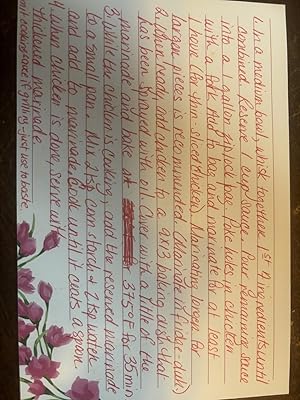 1. In a medium bowl, whisk together 1st 4 ingredients until
combined. Reserve 1 cup sauce. Pour remaining sauce
into a 1 gallon ziplock bag. Poke holes in chicken
with a fork. Add to bag and marinate for at least
1 hour (for thin sliced chicken). Marinating longer for
larger pieces is recommended. (Marinate in fridge - duh)
2. When ready, add chicken to a 9x13 baking dish that
has been sprayed with oil. Cover with a little of the
marinade and bake at 375°F for 35 min
3. While the chicken is cooking, add the reserved marinade
to a small pan. Mix 2 tsp corn starch + 2 tsp water
and add to marinade. Cook until it coats a spoon
4. When chicken is done, serve with
thickened marinade.
if grilling - just use to baste.